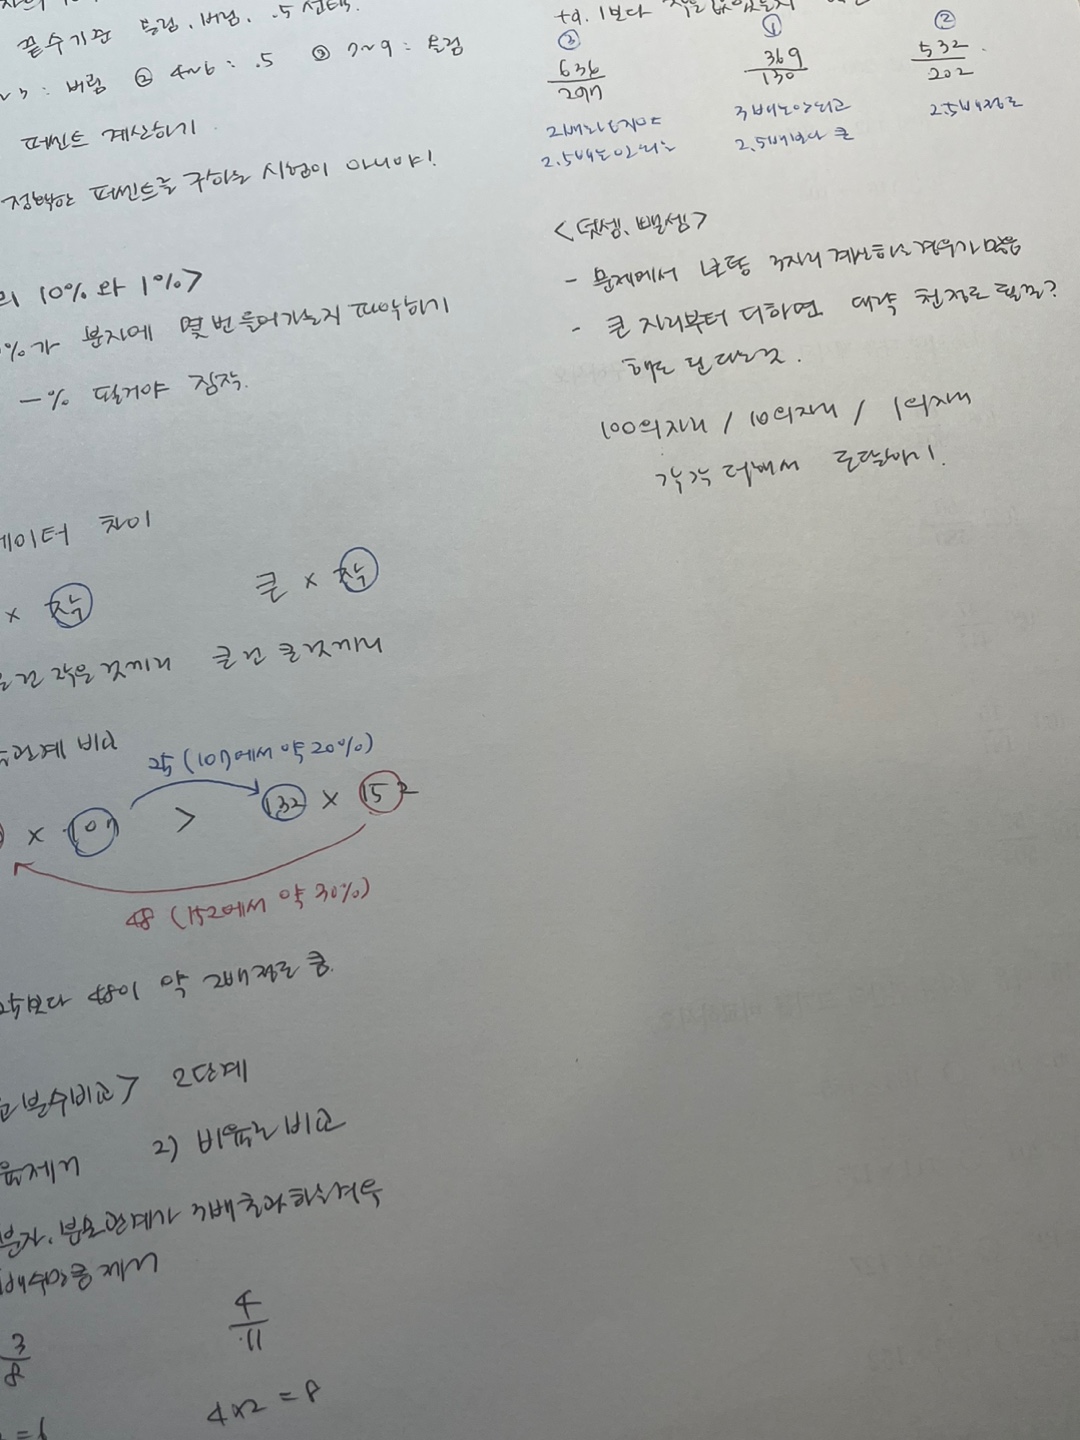 끝수기준 올림, 버림, .5 선택.
~3 : 버림 ② 4~6 : .5 ③ 7~9 : 올림
퍼센트 계산하기
정확한 퍼센트를 구하는 시험이 아니야!
의 10% 와 1%>
%가 분자에 몇번 들어가는지 파악하기
—% 될거야 짐작.
데이터 차이
× 작 큰 × 작
작은 것끼리 큰건 큰것끼리
관계 비교
25 (107에서 약 20%)
× 107 > 132 × 152
48 (152에서 약 30%)
25보다 48이 약 2배정도 큼.
분수비교> 2단계
2) 비율로 비교
분자, 분모관계가 3배초과하는경우
배수만큼 제거
3/8 4/11
4×2 = 8
tq. 1보다
③ ① ②
636/297 369/130 532/202
3배는안되고 2.5배정도
2.5배보다 큰
<덧셈, 뺄셈>
- 문제에서 보통 3자리 계산하는경우가 많음
- 큰 자리부터 더하면 대략 천정도 될걸?
해도 된다는것.
100의자리 / 10의자리 / 1의자리
각각 더해서